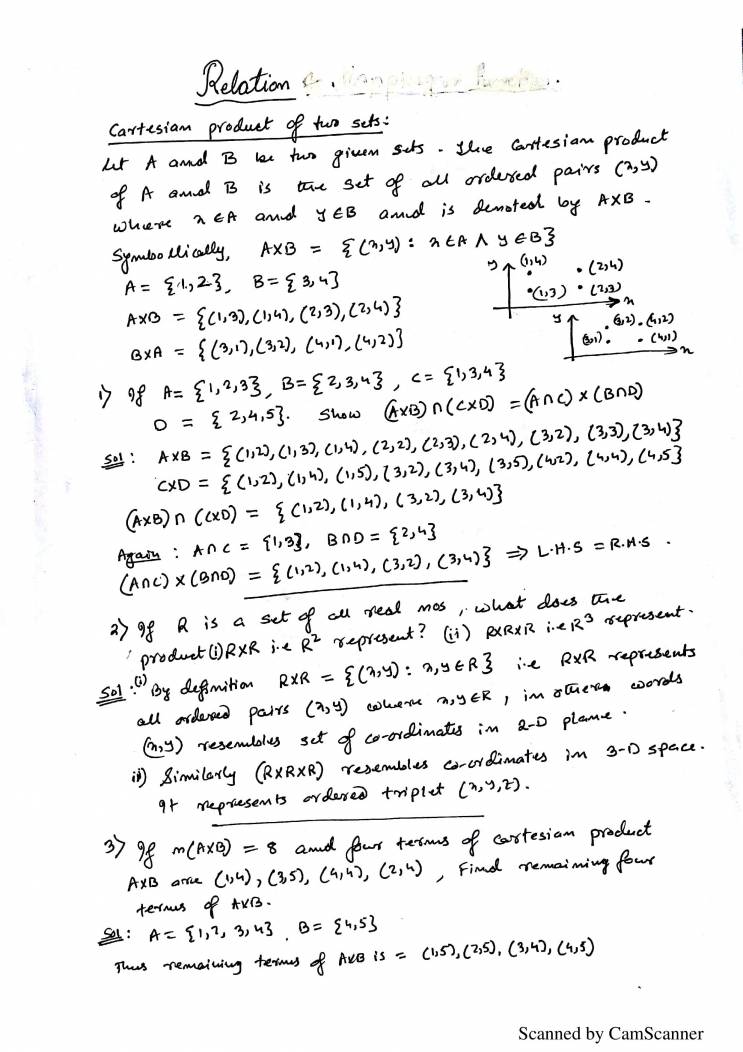 Relation
Cartesian product of two sets:
Let A and B be two given sets. The Cartesian product
of A and B is the set of all ordered pairs (x,y)
where x ∈ A and y ∈ B and is denoted by A×B.
Symbollically, A×B = {(x,y) : x ∈ A ∧ y ∈ B}
A = {1,2}, B = {3,4}
A×B = {(1,3),(1,4),(2,3),(2,4)}
B×A = {(3,1),(3,2),(4,1),(4,2)}
y (1,4) (2,4)
(1,3) (2,3)
x
y (3,2) (4,2)
(3,1) (4,1)
x
1) If A = {1,2,3}, B = {2,3,4}, C = {1,3,4}
D = {2,4,5}. Show (A×B)∩(C×D) = (A∩C)×(B∩D)
Sol: A×B = {(1,2),(1,3),(1,4),(2,2),(2,3),(2,4),(3,2),(3,3),(3,4)}
C×D = {(1,2),(1,4),(1,5),(3,2),(3,4),(3,5),(4,2),(4,4),(4,5}
(A×B)∩(C×D) = {(1,2),(1,4),(3,2),(3,4)}
Again: A∩C = {1,3}, B∩D = {2,4}
(A∩C)×(B∩D) = {(1,2),(1,4),(3,2),(3,4)} ⇒ L.H.S = R.H.S.
2) If R is a set of all real nos, what does the
product (i) R×R i.e R² represent? (ii) R×R×R i.e R³ represent.
Sol: (i) By definition R×R = {(x,y) : x,y ∈ R} i.e R×R represents
all ordered pairs (x,y) where x,y ∈ R, in others words
(x,y) resembles set of co-ordinates in 2-D plane.
ii) Similarly (R×R×R) resembles co-ordinates in 3-D space.
It represents ordered triplet (x,y,z).
3) If n(A×B) = 8 and four terms of cartesian product
A×B are (1,4), (3,5), (4,4), (2,4), Find remaining four
terms of A×B.
Sol: A = {1,2,3,4}, B = {4,5}
Thus remaining terms of A×B is = (1,5),(2,5),(3,4),(4,5)
Scanned by CamScanner